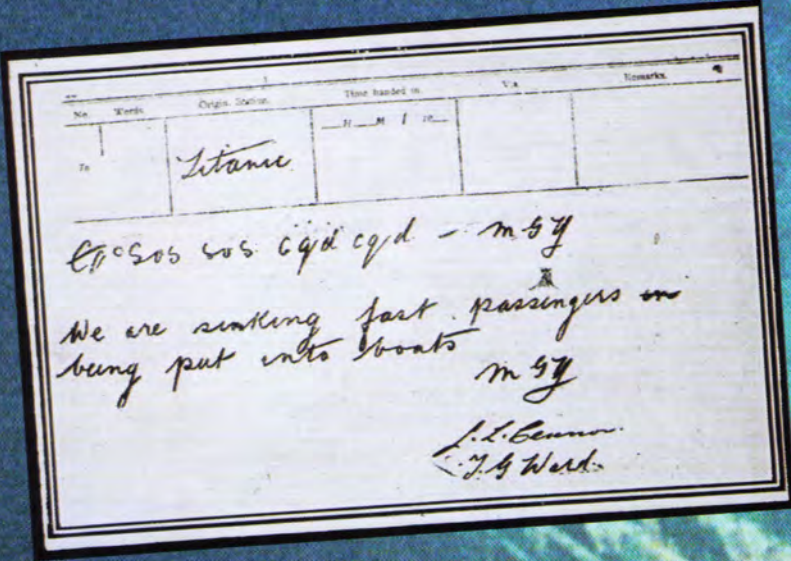 No. Words. Origin. Station. Time handed in. Via. Remarks.
To Titanic H M 19
SOS SOS cqd cqd - MGY
We are sinking fast passengers
being put into boats
MGY
T G Ward